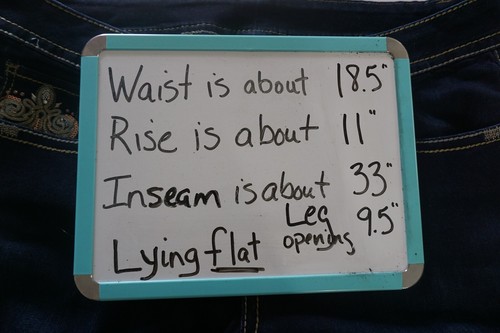 Waist is about 18.5"
Rise is about 11"
Inseam is about 33"
Leg opening 9.5"
Lying flat